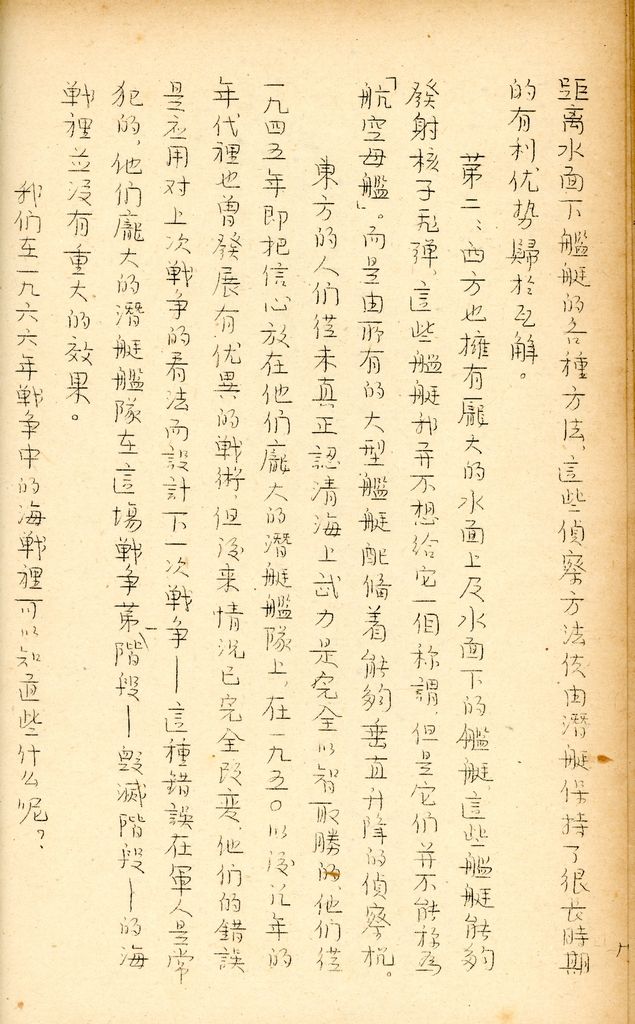 距离水面下艦艇的各種方法,這些偵察方法使由潛艇保持了很長時期
的有利优势歸於瓦解。
苐二、西方也擁有龐大的水面上及水面下的艦艇,這些艦艇能夠
發射核子飛弹,這些艦艇我并不想給它一個称謂,但是它们并不能称為
「航空母艦」。而是由所有的大型艦艇配備着能夠垂直升降的偵察机。
東方的人们從未真正認清海上武力是完全以智取勝的,他们從
一九四五年即把信心放在他们龐大的潛艇艦隊上,在一九五〇以後几年的
年代裡也曾發展有优異的戦術,但後来情況已完全改変,他们的錯誤
是在用对上次戦争的看法而設計下一次戦争—這種錯誤在軍人是常
犯的,他们龐大的潛艇艦隊在這場戦争苐一階段—毀滅階段—的海
戦裡並沒有重大的效果。
我们在一九六六年戦争中的海戦裡可以知道些什么呢?